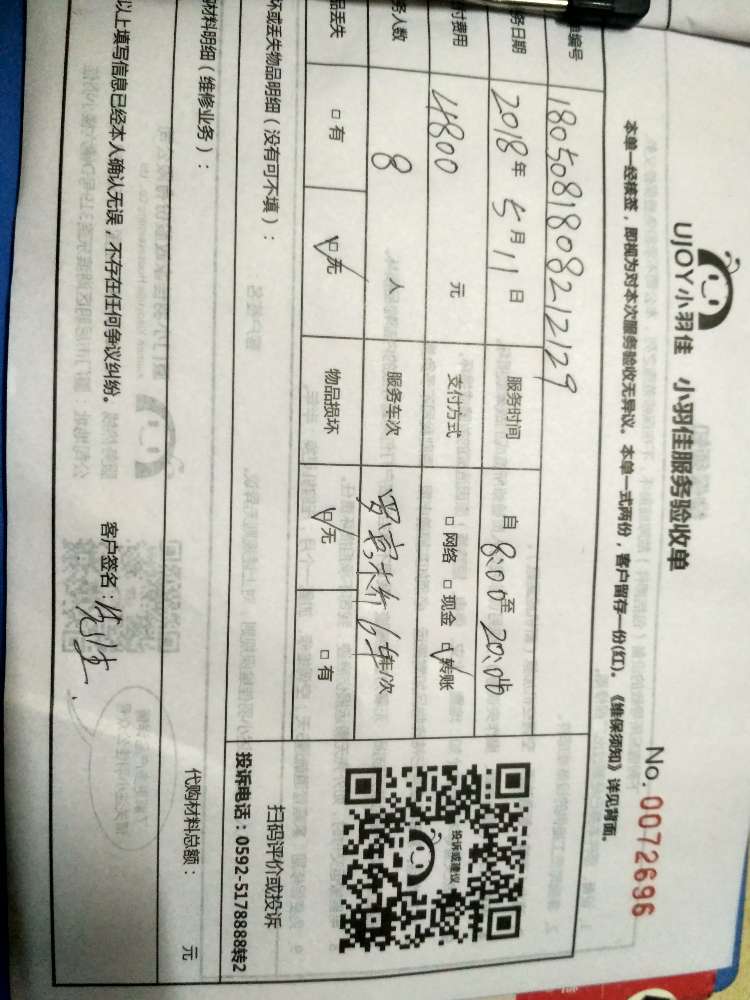 UJOY小羽佳 小羽佳服务验收单
No. 0072696
本单一经接签，即视为对本次服务验收无异议。本单一式两份，客户留存一份(红)。《维保须知》详见背面。
编号 1805081808212129
务日期 2018年 5月 11日 服务时间 自 8:00 至 20:00
付费用 4800 元 支付方式 □ 网络 □ 现金 ☑ 转账
务人数 8 人 服务车次 6车/次
品丢失 □ 有 ☑ 无 物品损坏 ☑ 无 □ 有
投诉或建议
扫码评价或投诉
投诉电话：0592-5178888转2
坏或丢失物品明细（没有可不填）：
材料明细（维修业务）：
代购材料总额： 元
以上填写信息已经本人确认无误，不存在任何争议纠纷。 客户签名：